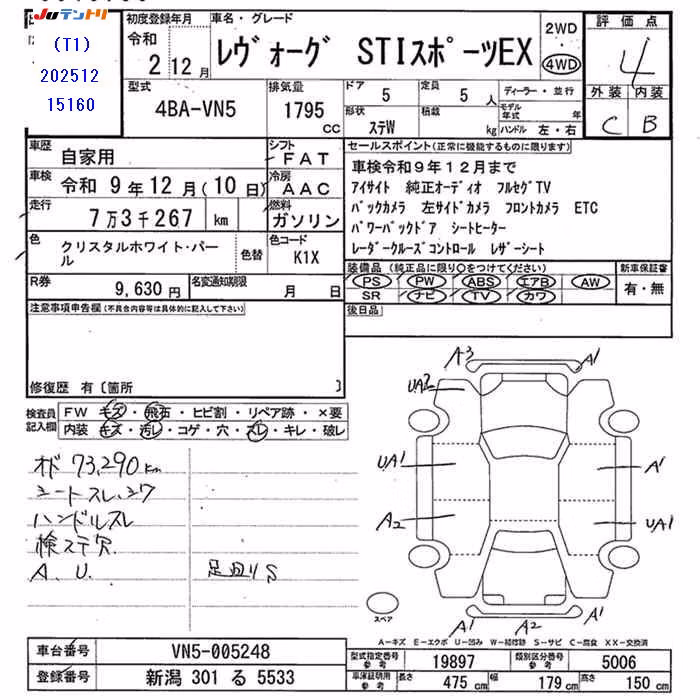 Juテントリ
(T1)
202512
15160
初度登録年月
令和
2 12 月
車名・グレード
レヴォーグ STIスポーツEX
2WD
4WD
評価点
4
外装 内装
C B
型式
4BA-VN5
排気量
1795
CC
ドア
5
定員
5 人
形状
ステW
積載
kg
ディーラー・並行
モデル年式 年
ハンドル 左・右
車歴
自家用
シフト
FAT
車検
令和 9年12月(10日)
冷房
AAC
走行
7万3千267 km
燃料
ガソリン
色
クリスタルホワイト・パール
色替
色コード
K1X
R券
9,630 円
名変通知期限
月 日
セールスポイント(正常に機能するものに限ります)
車検令和9年12月まで
アイサイト 純正オーディオ フルセグTV
バックカメラ 左サイドカメラ フロントカメラ ETC
パワーバックドア シートヒーター
レーダークルーズコントロール レザーシート
装備品(純正品に限り○をつけてください)
PS PW ABS エアB AW
SR ナビ TV カワ
新車保証書
有・無
後日品
注意事項申告欄(不具合内容等は具体的に記入して下さい)
修復歴 有〔箇所 〕
検査員記入欄
FW キズ・飛石・ヒビ割・リペア跡・×要
内装 キズ・汚レ・コゲ・穴・スレ・キレ・破レ
オド 73,290km
シートスレ、シワ
ハンドルスレ
検ステ穴
A.U. 足回りS
A3 A1
UA2
UA1 A1
A2 UA1
A1 A2 A1
スペア
A−キズ E−エクボ U−凹み W−補修跡 S−サビ C−腐食 XX−交換済
車台番号
VN5-005248
登録番号
新潟 301 る 5533
型式指定番号
参考
19897
類別区分番号
参考
5006
車庫証明用
参考
長さ 475 cm
幅 179 cm
高さ 150 cm